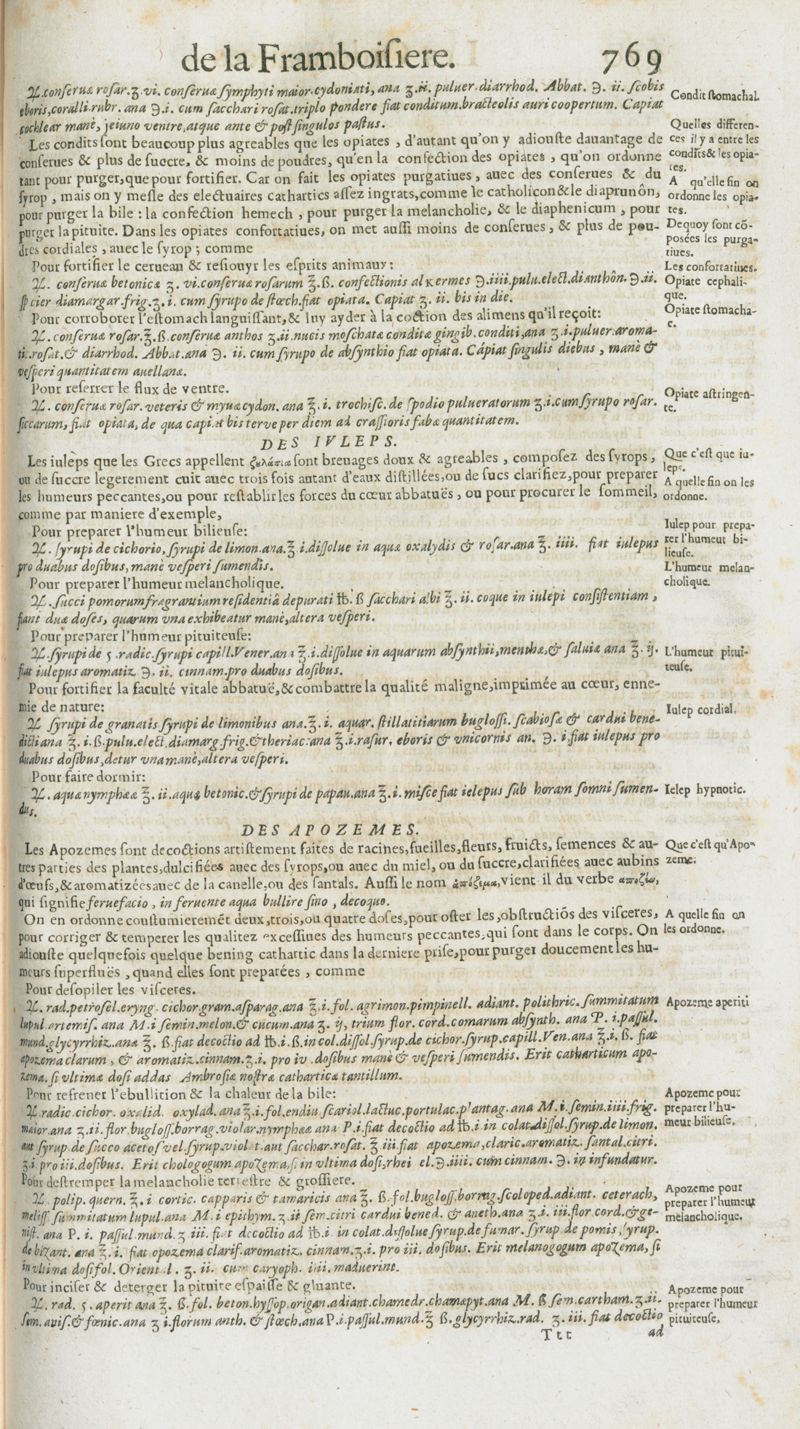 de la Framboiſiere. 769
♃. conſeruæ roſar. ʒ. vi. conſeruæ ſymphyti maior. cydoniati, ana ʒ. ii. puluer. diarrhod. Abbat. ℈. ii. ſcobis
eboris, coralli rubr. ana ℈. i. cum ſacchari roſat. triplo pondere fiat conditum. bracteolis auri coopertum. Capiat
cochlear manè, jeiuno ventre, atque ante & poſt ſingulos paſtus.
Condit ſtomachal.
Les condits ſont beaucoup plus agreables que les opiates, d'autant qu'on y adiouſte dauantage de
conſerues & plus de ſuccre, & moins de poudres, qu'en la confection des opiates, qu'on ordonne
tant pour purger, que pour fortifier. Car on fait les opiates purgatiues, auec des conſerues & du
ſyrop, mais on y meſle des electuaires cathartics aſſez ingrats, comme le catholicon & le diaprunon,
pour purger la bile: la confection hemech, pour purger la melancholie, & le diaphenicum, pour
purger la pituite. Dans les opiates confortatiues, on met auſſi moins de conſerues, & plus de pou-
dres cordiales, auec le ſyrop; comme
Quelles differen-
ces il y a entre les
condits & les opia-
tes.
A qu'elle fin on
ordonne les opia-
tes.
Dequoy ſont cō-
poſées les purga-
tiues.
Les confortatiues.
Pour fortifier le cerueau & reſiouyr les eſprits animaux:
♃. conſeruæ betonicæ ʒ. vi. conſeruæ roſarum ℥. ß. confectionis alkermes ℈. iiii. pulu. elect. dianthon. ℈. ii.
ſpecier diamargar. frig. ʒ. i. cum ſyrupo de ſtœch. fiat opiata. Capiat ʒ. ii. bis in die.
Opiate cephali-
que.
Pour corroborer l'eſtomach languiſſant, & luy ayder à la coction des alimens qu'il reçoit:
♃. conſeruæ roſar. ℥. ß. conſeruæ anthos ʒ. ii. nucis moſchatæ conditæ gingib. conditi, ana ʒ. i. puluer. aroma-
ti. roſat. & diarrhod. Abbat. ana ℈. ii. cum ſyrupo de abſynthio fiat opiata. Capiat ſingulis diebus, manè &
veſperi quantitatem auellanæ.
Opiate ſtomacha-
e.
Pour reſerrer le flux de ventre.
♃. conſeruæ roſar. veteris & myuæ cydon. ana ℥. i. trochiſc. de ſpodio pulueratorum ʒ. i. cum ſyrupo roſar.
ſiccarum, fiat opiata, de qua capiat bis terve per diem ad craſſioris fabæ quantitatem.
Opiate aſtringen-
te.
DES IVLEPS.
Les iuleps que les Grecs appellent ζυλάπια ſont breuages doux & agreables, compoſez des ſyrops,
ou de ſuccre legerement cuit auec trois fois autant d'eaux diſtillées, ou de ſucs clarifiez, pour preparer
les humeurs peccantes, ou pour reſtablir les forces du cœur abbatuës, ou pour procurer le ſommeil,
comme par maniere d'exemple,
Que c'eſt que iu-
lep.
A quelle fin on les
ordonne.
Pour preparer l'humeur bilieuſe:
♃. ſyrupi de cichorio, ſyrupi de limon. ana. ℥ i. diſſolue in aqua oxalydis & roſar. ana ℥. iiii. fiat iulepus
pro duabus doſibus, manè veſperi ſumendis.
Iulep pour prepa-
rer l'humeur bi-
lieuſe.
Pour preparer l'humeur melancholique.
♃. ſucci pomorum fragrantium reſidentiâ depurati ℔. ß ſacchari albi ℥. ii. coque in iulepi conſiſtentiam,
fiant duæ doſes, quarum vna exhibeatur manè, altera veſperi.
L'humeur melan-
cholique.
Pour preparer l'humeur pituiteuſe:
♃. ſyrupi de 5. radic. ſyrupi capill. Vener. ana ℥. i. diſſolue in aquarum abſynthii, menthæ, & ſaluiæ ana ℥. ij.
fiat iulepus aromatiz ℈. ii. cinnam. pro duabus doſibus.
L'humeur pitui-
teuſe.
Pour fortifier la faculté vitale abbatuë, & combattre la qualité maligne, imprimée au cœur, enne-
mie de nature:
♃ ſyrupi de granatis ſyrupi de limonibus ana. ℥. i. aquar. ſtillatitiarum bugloſſi. ſcabioſæ & cardui bene-
dicti ana ℥. i. ß. pulu. elect. diamarg. frig. & theriac. ana ʒ. i. raſur. eboris & vnicornis an. ℈. i fiat iulepus pro
duabus doſibus, detur vna manè, altera veſperi.
Iulep cordial.
Pour faire dormir:
♃. aquæ nymphææ ℥. ii. aquæ betonic. & ſyrupi de papau. ana ℥. i. miſce fiat ielepus ſub horam ſomni ſumen-
dus.
Ielep hypnotic.
DES APOZEMES.
Les Apozemes ſont decoctions artiſtement faites de racines, fueilles, fleurs, fruicts, ſemences & au-
tres parties des plantes, dulcifiées auec des ſyrops, ou auec du miel, ou du ſuccre, clarifiées auec aubins
d'œufs, & aromatizées auec de la canelle, ou des ſantals. Auſſi le nom ἀπόζεμα, vient il du verbe ἀποζέω,
qui ſignifie feruefacio, in feruente aqua bullire ſino, decoquo.
Que c'eſt qu'Apo-
zeme.
On en ordonne couſtumieremēt deux, trois, ou quatre doſes, pour oſter les obſtructiōs des viſceres,
pour corriger & temperer les qualitez exceſſiues des humeurs peccantes, qui ſont dans le corps. On
adiouſte quelquefois quelque bening cathartic dans la derniere priſe, pour purger doucement les hu-
meurs ſuperfluës, quand elles ſont preparées, comme
A quelle fin on
les ordonne.
Pour deſopiler les viſceres.
♃. rad. petroſel. eryng. cichor. gram. aſparag. ana ℥. i. fol. agrimon. pimpinell. adiant. polithric. ſummitatum
lupul artemiſ. ana M. i ſemin. melon. & cucum. ana ʒ. ij, trium flor. cord. comarum abſynth. ana P. i. paſſul.
mund. glycyrrhiz. ana ℥. ß. fiat decoctio ad ℔. i. ß. in col. diſſol. ſyrup. de cichor. ſyrup. capill. Ven. ana ℥. i. ß. fiat
apozema clarum, & aromatiz. cinnam. ʒ. i. pro iv. doſibus manè & veſperi ſumendis. Erit catharticum apo-
zema. ſi vltimæ doſi addas Ambroſiæ noſtræ catharticæ tantillum.
Apozeme aperiti
Pour refrener l'ebullition & la chaleur de la bile:
♃. radic. cichor. oxalid. oxylad. ana ℥. i. fol. endiu. ſcariol. lactuc. portulac. plantag. ana M. i. ſemin. iiii. frig.
maior. ana ʒ. ii. flor. bugloſſ. borrag. violar. nymphææ ana P. i. fiat decoctio ad ℔. i in colat. diſſol. ſyrup. de limon.
aut ſyrup. de ſucco acetoſ vel. ſyrup. viol t. aut ſacchar. roſat. ℥ iii. fiat apozema, claric. aromatiz. ſantal. citri.
ʒ. i pro iii. doſibus. Erit chologogum apozema, ſi in vltima doſi, rhei el. ℈. iiii. cum cinnam. ℈. i. infundatur.
Apozeme pour
preparer l'hu-
meur bilieuſe.
Pour deſtremper la melancholie terreſtre & groſſiere.
♃. polip. quern. ℥. i cortic. capparis & tamaricis ana ℥. ß. fol. bugloſſ. borrag. ſcoloped. adiant. ceterach,
meliſſ ſummitatum lupul. ana M. i epithym. ʒ. ii ſem. citri cardui bened. & aneth. ana ʒ. i. iii. flor cord. & ge-
niſt. ana P. i. paſſul mund. ʒ iii. fiat decoctio ad ℔. i in colat. diſſolue ſyrup. de fumar. ſyrup de pomis, ſyrup.
de bizant. ana ℥. i. fiat opozema clarif. aromatiz. cinnam. ʒ. i. pro iii. doſibus. Erit melanogogum apozema, ſi
in vltima doſi fol. Oriental. ʒ. ii. cum caryoph. iiii. maduerint.
Apozeme pour
preparer l'humeur
melancholique.
Pour inciſer & deterger la pituite eſpaiſſe & gluante.
♃. rad. 5. aperit ana ℥. ß. fol. beton. hyſſop. origan. adiant. chamedr. chamæpyt. ana M. ß ſem. cartham. ʒ. ii.
ſem. aniſ. & fœnic. ana ʒ i. florum anth. & ſtœch. ana P. i. paſſul. mund. ℥ ß. glycyrrhiz. rad. ʒ. iii. fiat decoctio
Apozeme pour
preparer l'humeur
pituiteuſe.
Ttt ad